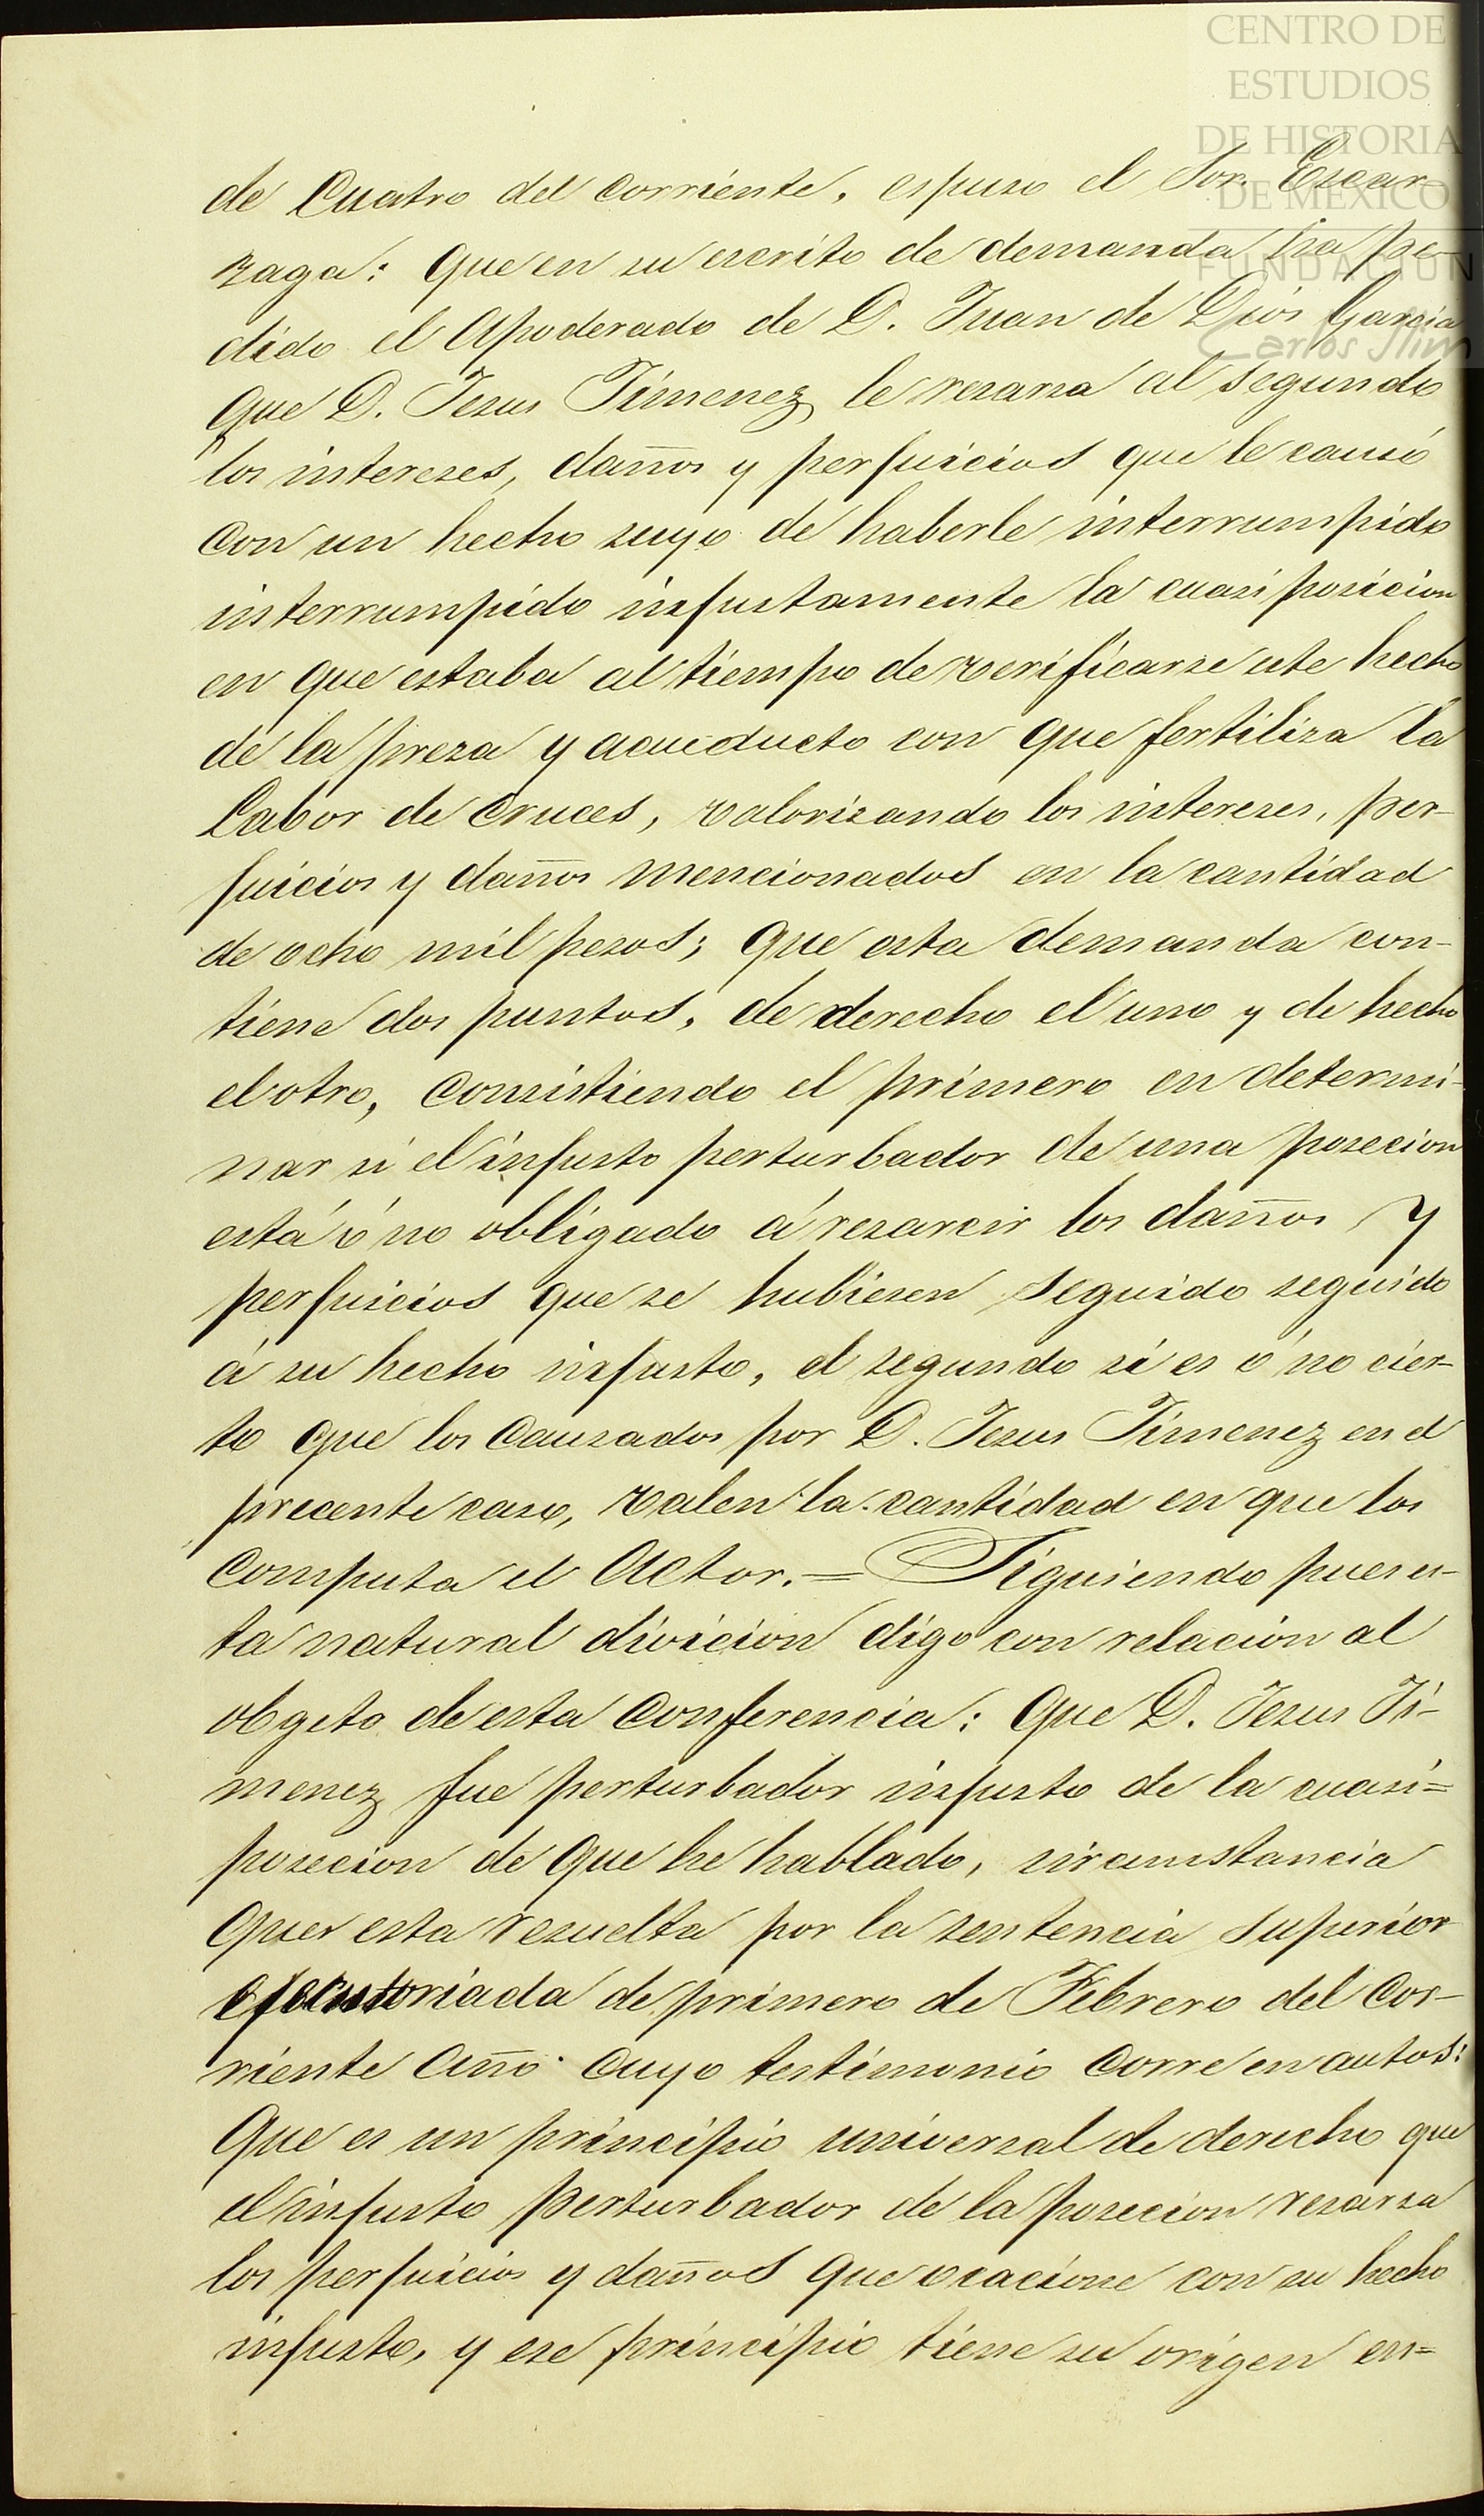 CENTRO DE
ESTUDIOS
DE HISTORIA
DE MÉXICO
FUNDACIÓN
Carlos Slim
de Cuatro del corriente, espuso el Sor. Escar-
zaga: Que en su escrito de demanda ha pe-
dido el Apoderado de D. Juan de Dios Garcia
que D. Jesus Jimenez le resarsa al segundo
los intereses, daños y perjuicios que le causó
con un hecho suyo de haberle interrumpido
interrumpido injustamente la cuasi posicion
en que estaba al tiempo de verificarse este hecho
de la presa y acueducto con que fertiliza la
Labor de Cruces, valorizando los intereses, per-
juicios y daños mencionados en la cantidad
de ocho mil pesos; Que esta demanda con-
tiene dos puntos, de derecho el uno y de hecho
el otro, Consistiendo el primero en determi-
nar si el injusto perturbador de una posecion
está ó no obligado á resarcir los daños y
perjuicios que se hubiesen seguido seguido
á su hecho injusto, el segundo si es ó no cier-
to que los Causados por D. Jesus Jimenez en el
precente caso, valen la cantidad en que los
Computa el Actor.= Siguiendo pues es-
ta natural divicion digo con relacion al
obgeto de esta Conferencia: Que D. Jesus Ji-
menez fue perturbador injusto de la cuasi=
posecion de que he hablado, sircunstancia
Que esta resuelta por la sentencia superior
ejecutoriada de primero de Febrero del Cor-
riente Año cuyo testimonio Corre en autos:
Que es un principio universal de derecho que
el injusto perturbador de la posecion resarsa
los perjuicios y daños que ocacione con su hecho
injusto, y ese principio tiene su origen en=